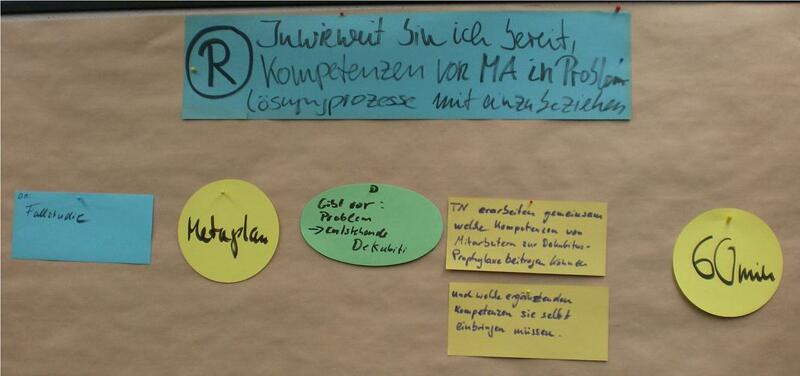 R
Inwieweit bin ich bereit,
Kompetenzen von MA in Problem
lösungsprozesse mit einzubeziehen
Fallstudie
Metaplan
D
Gibt vor:
Problem
→ entstehende
Dekubiti
TN erarbeiten gemeinsam
welche Kompetenzen von
Mitarbeitern zur Dekubitus-
Prophylaxe beitragen können
und welche ergänzenden
Kompetenzen sie selbst
einbringen müssen.
60 min